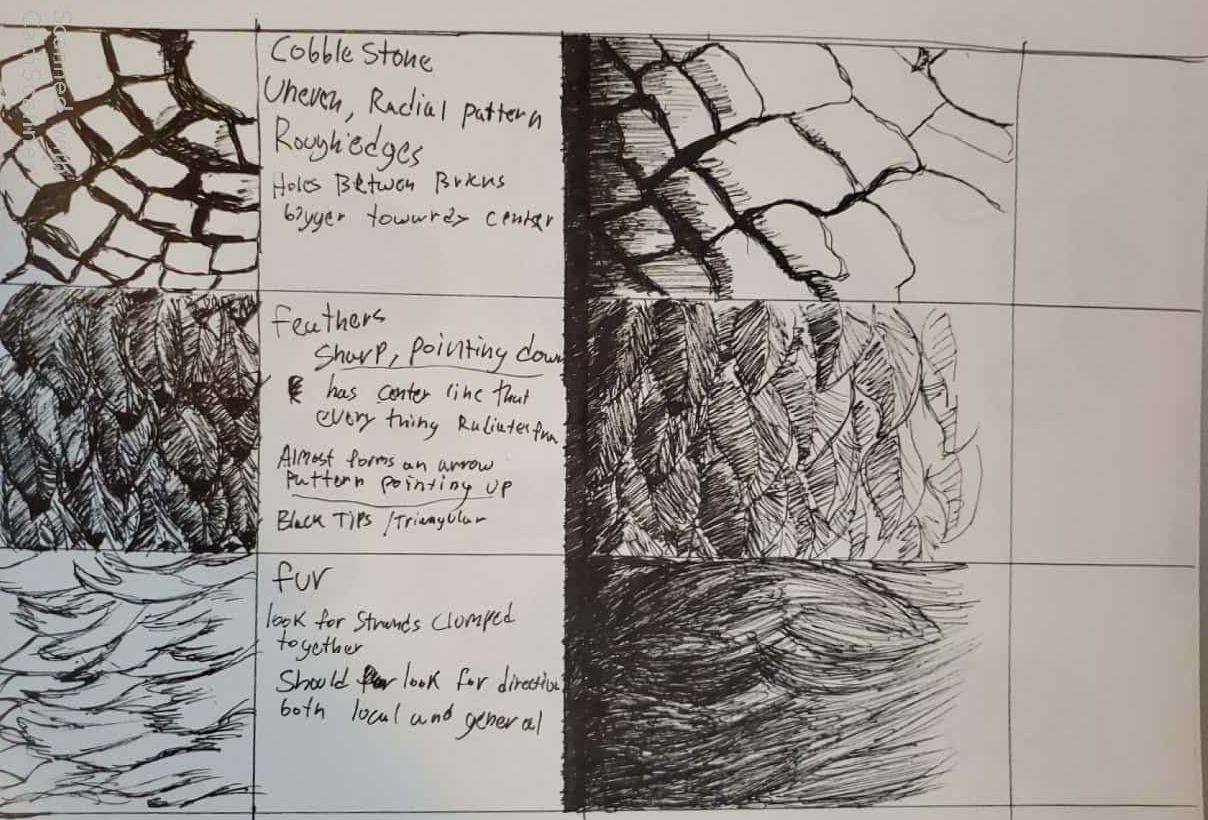 Scanned with
CamScanner
Cobble Stone
Uneven, Radial pattern
Rough edges
Holes Between Bricks
bigger towards center
Feathers
Sharp, pointing down
has center line that
every thing Radiates from
Almost forms an arrow
pattern pointing up
Black Tips / Triangular
fur
look for Strands Clumped
together
Should look for direction
both local and general